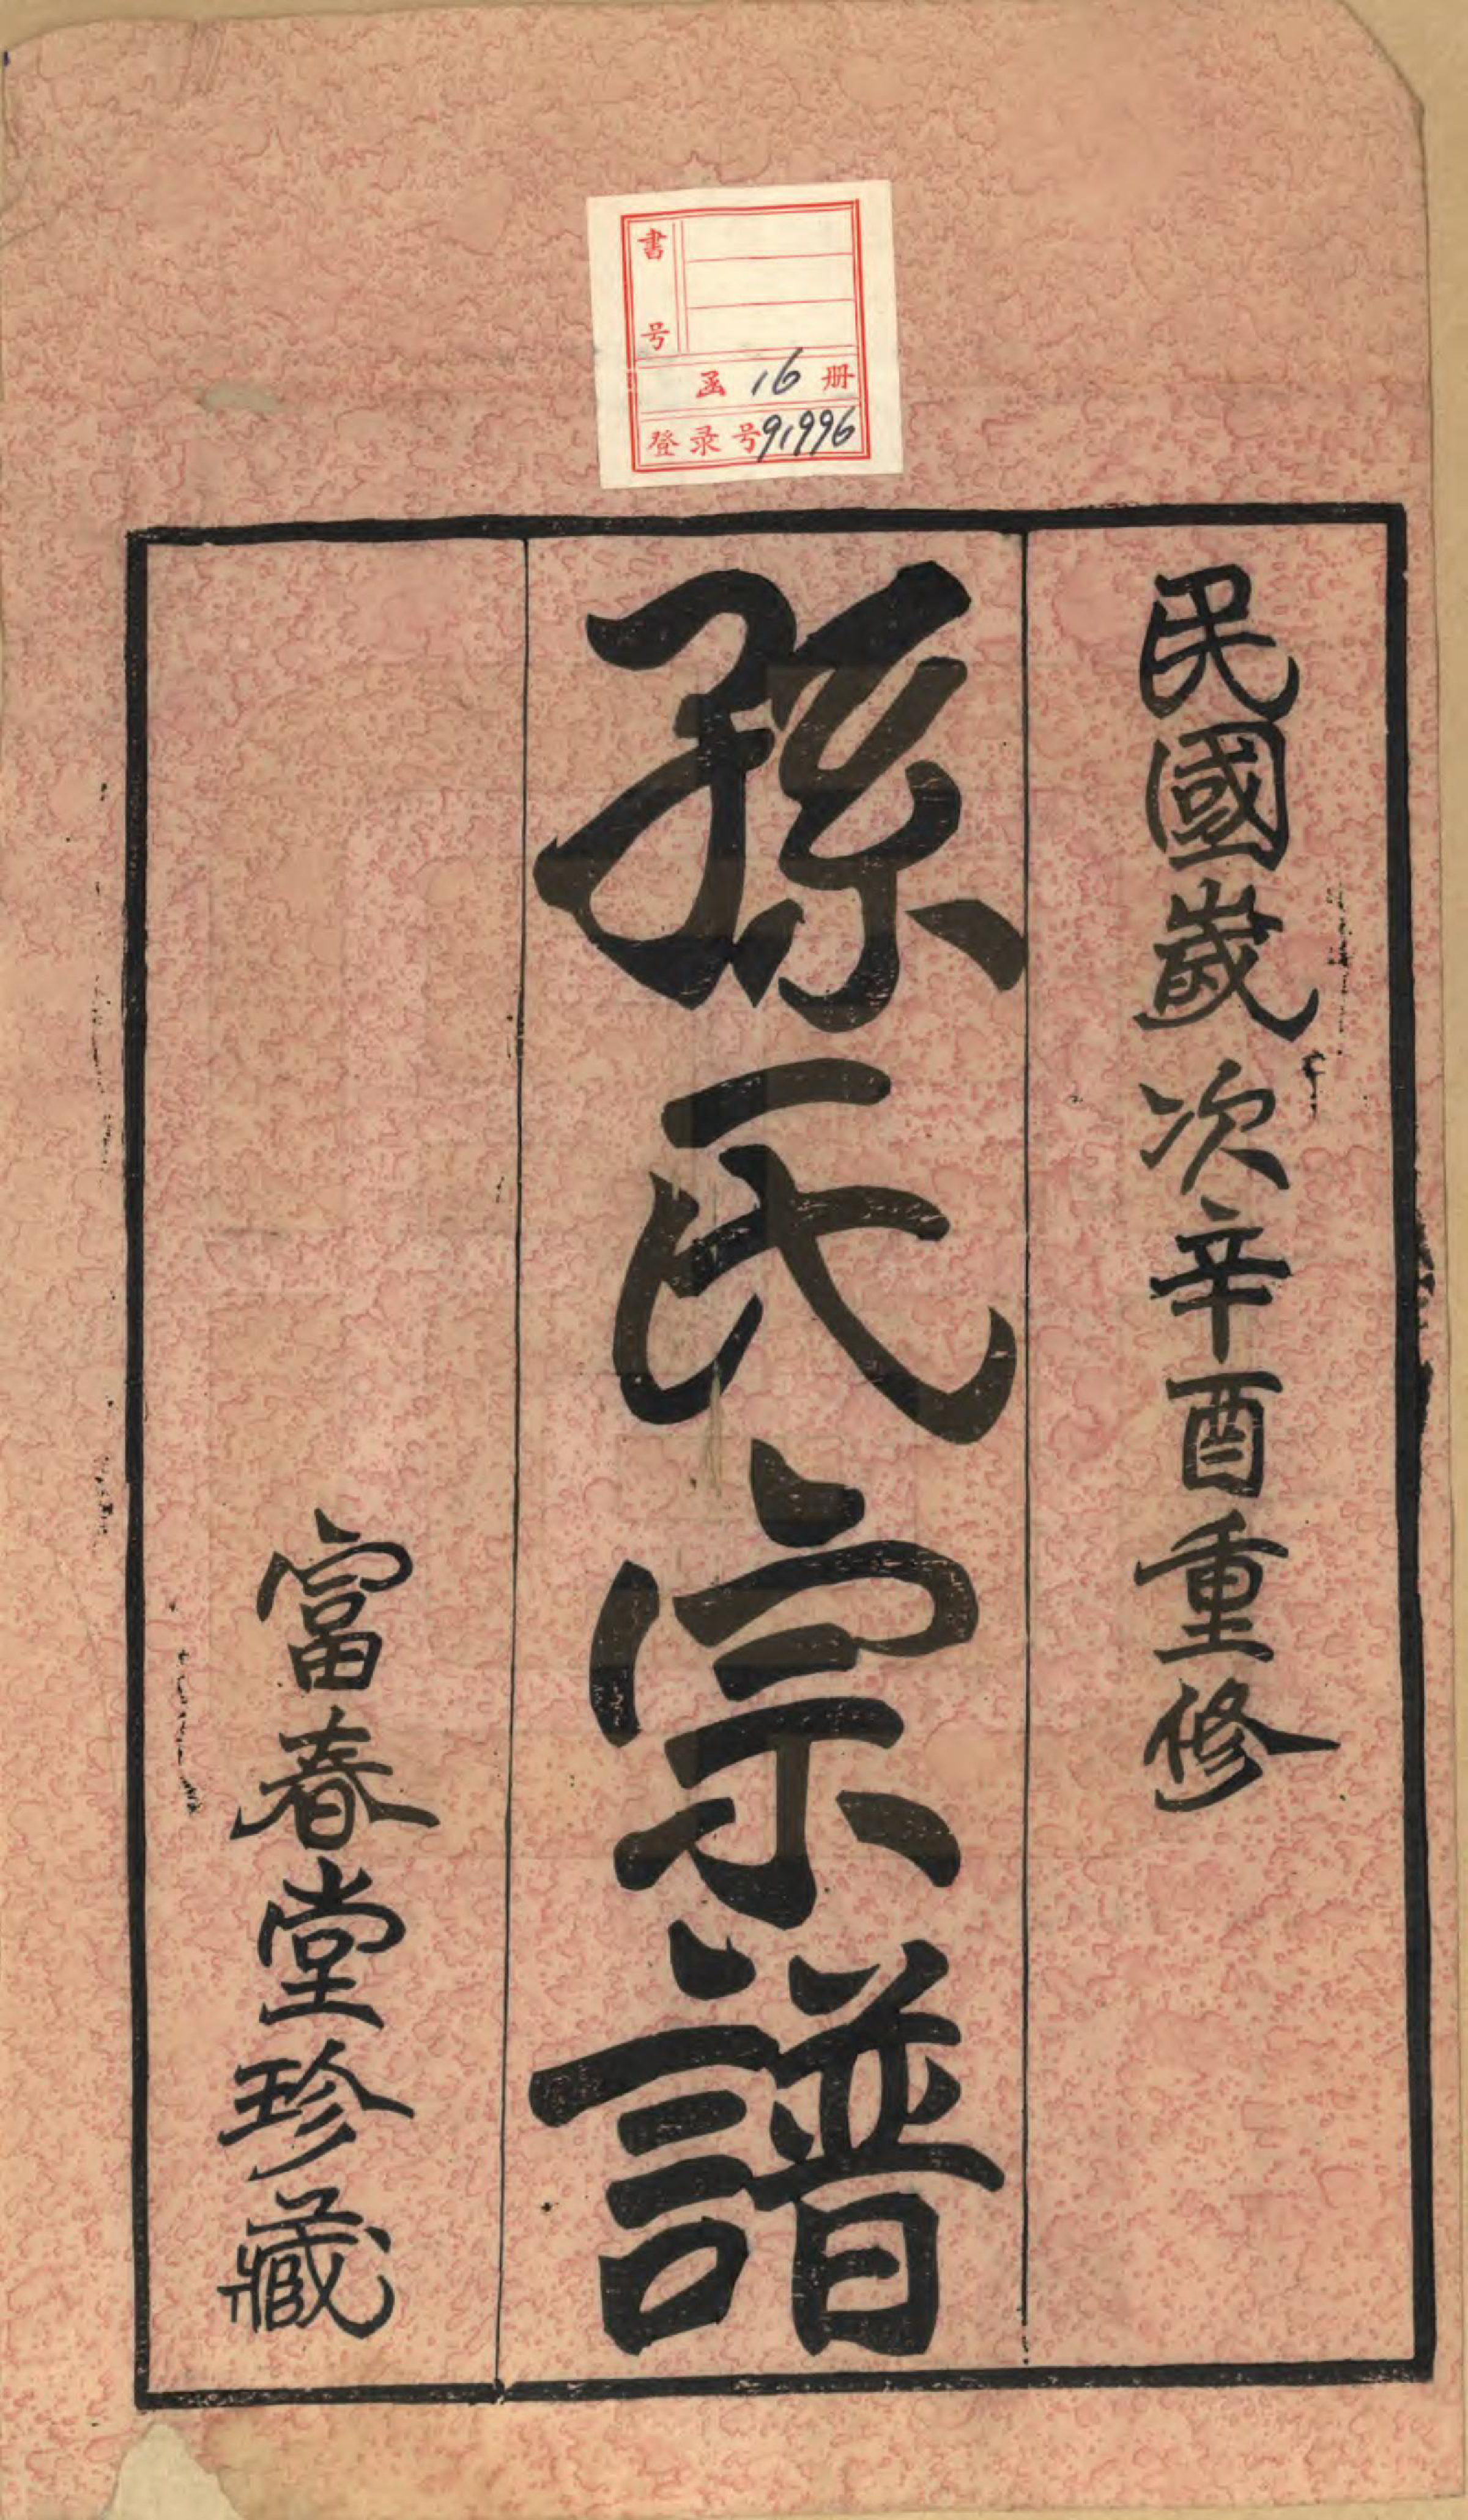 書号
函 16 册
登录号91996
民國歲次辛酉重修
孫氏宗譜
富春堂珍藏